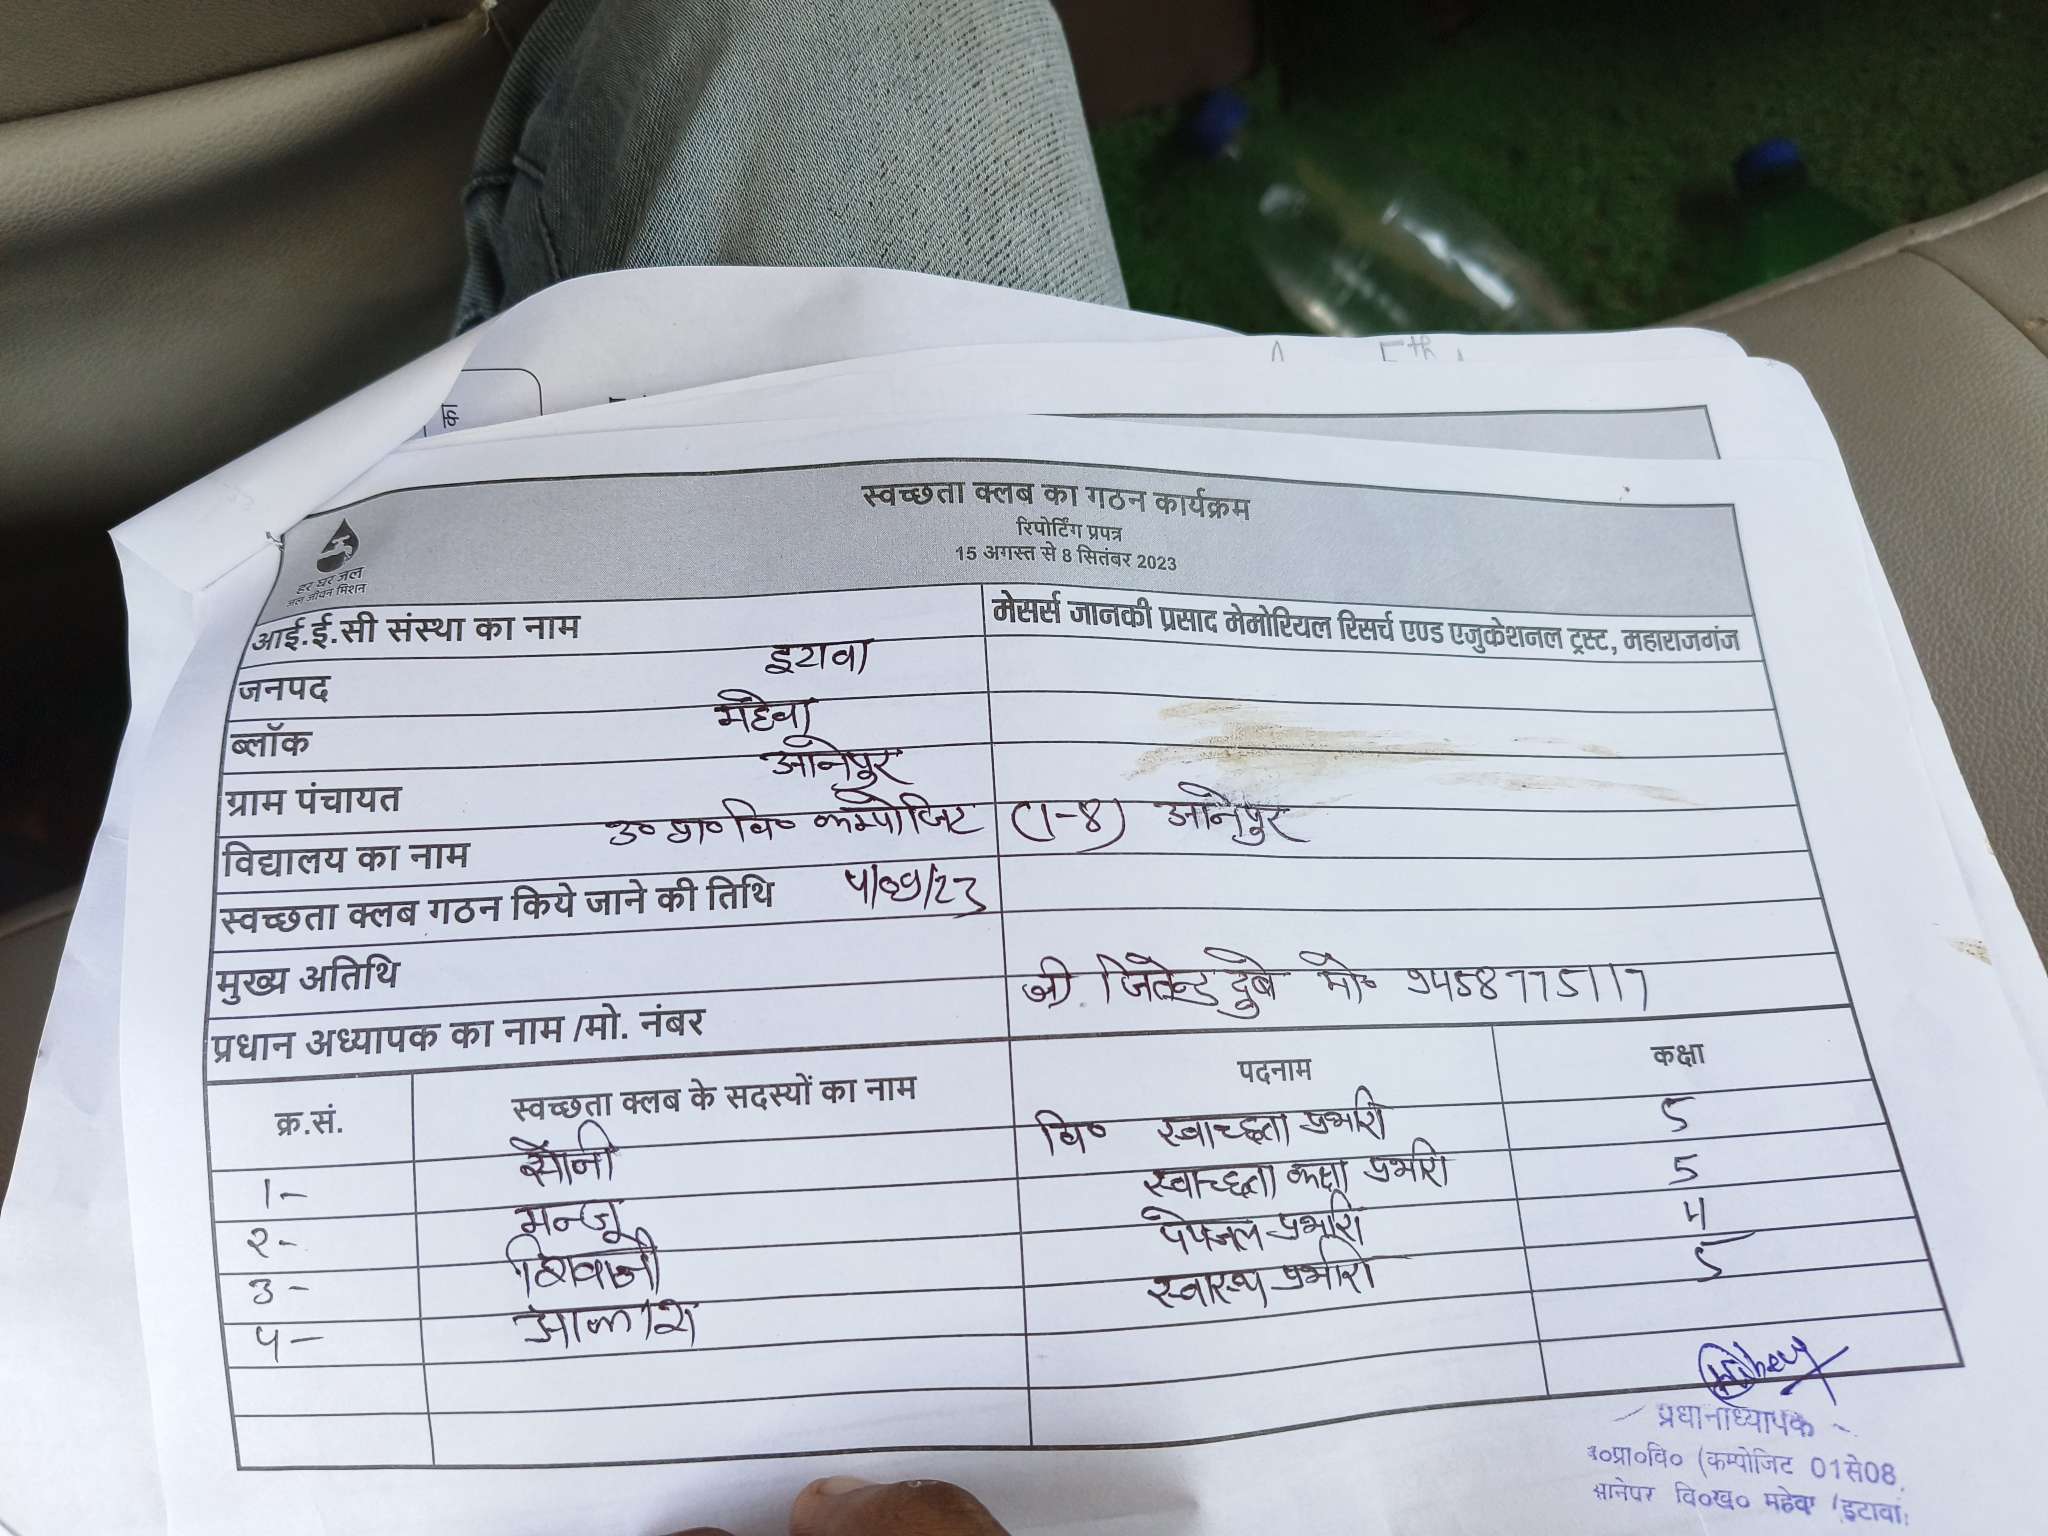 5th
का
स्वच्छता क्लब का गठन कार्यक्रम
रिपोर्टिंग प्रपत्र
15 अगस्त से 8 सितंबर 2023
हर घर जल
जल जीवन मिशन
आई.ई.सी संस्था का नाम मेसर्स जानकी प्रसाद मेमोरियल रिसर्च एण्ड एजुकेशनल ट्रस्ट, महाराजगंज
जनपद इटावा
ब्लॉक महेवा
ग्राम पंचायत आनेपुर
विद्यालय का नाम उ० प्रा० वि० कम्पोजिट (1-8) आनेपुर
स्वच्छता क्लब गठन किये जाने की तिथि 4/09/23
मुख्य अतिथि
प्रधान अध्यापक का नाम /मो. नंबर श्री जितेन्द्र दुबे मो० 9458775117
क्र.सं. स्वच्छता क्लब के सदस्यों का नाम पदनाम कक्षा
1- सोनी वि० स्वाच्छता प्रभारी 5
२- मन्जू स्वाच्छता कक्षा प्रभारी 5
3- शिवाजी पेयजल प्रभारी 4
४- आकाश स्वास्थ्य प्रभारी 5
प्रधानाध्यापक
उ०प्रा०वि० (कम्पोजिट 01से08
आनेपुर वि०ख० महेवा (इटावा)